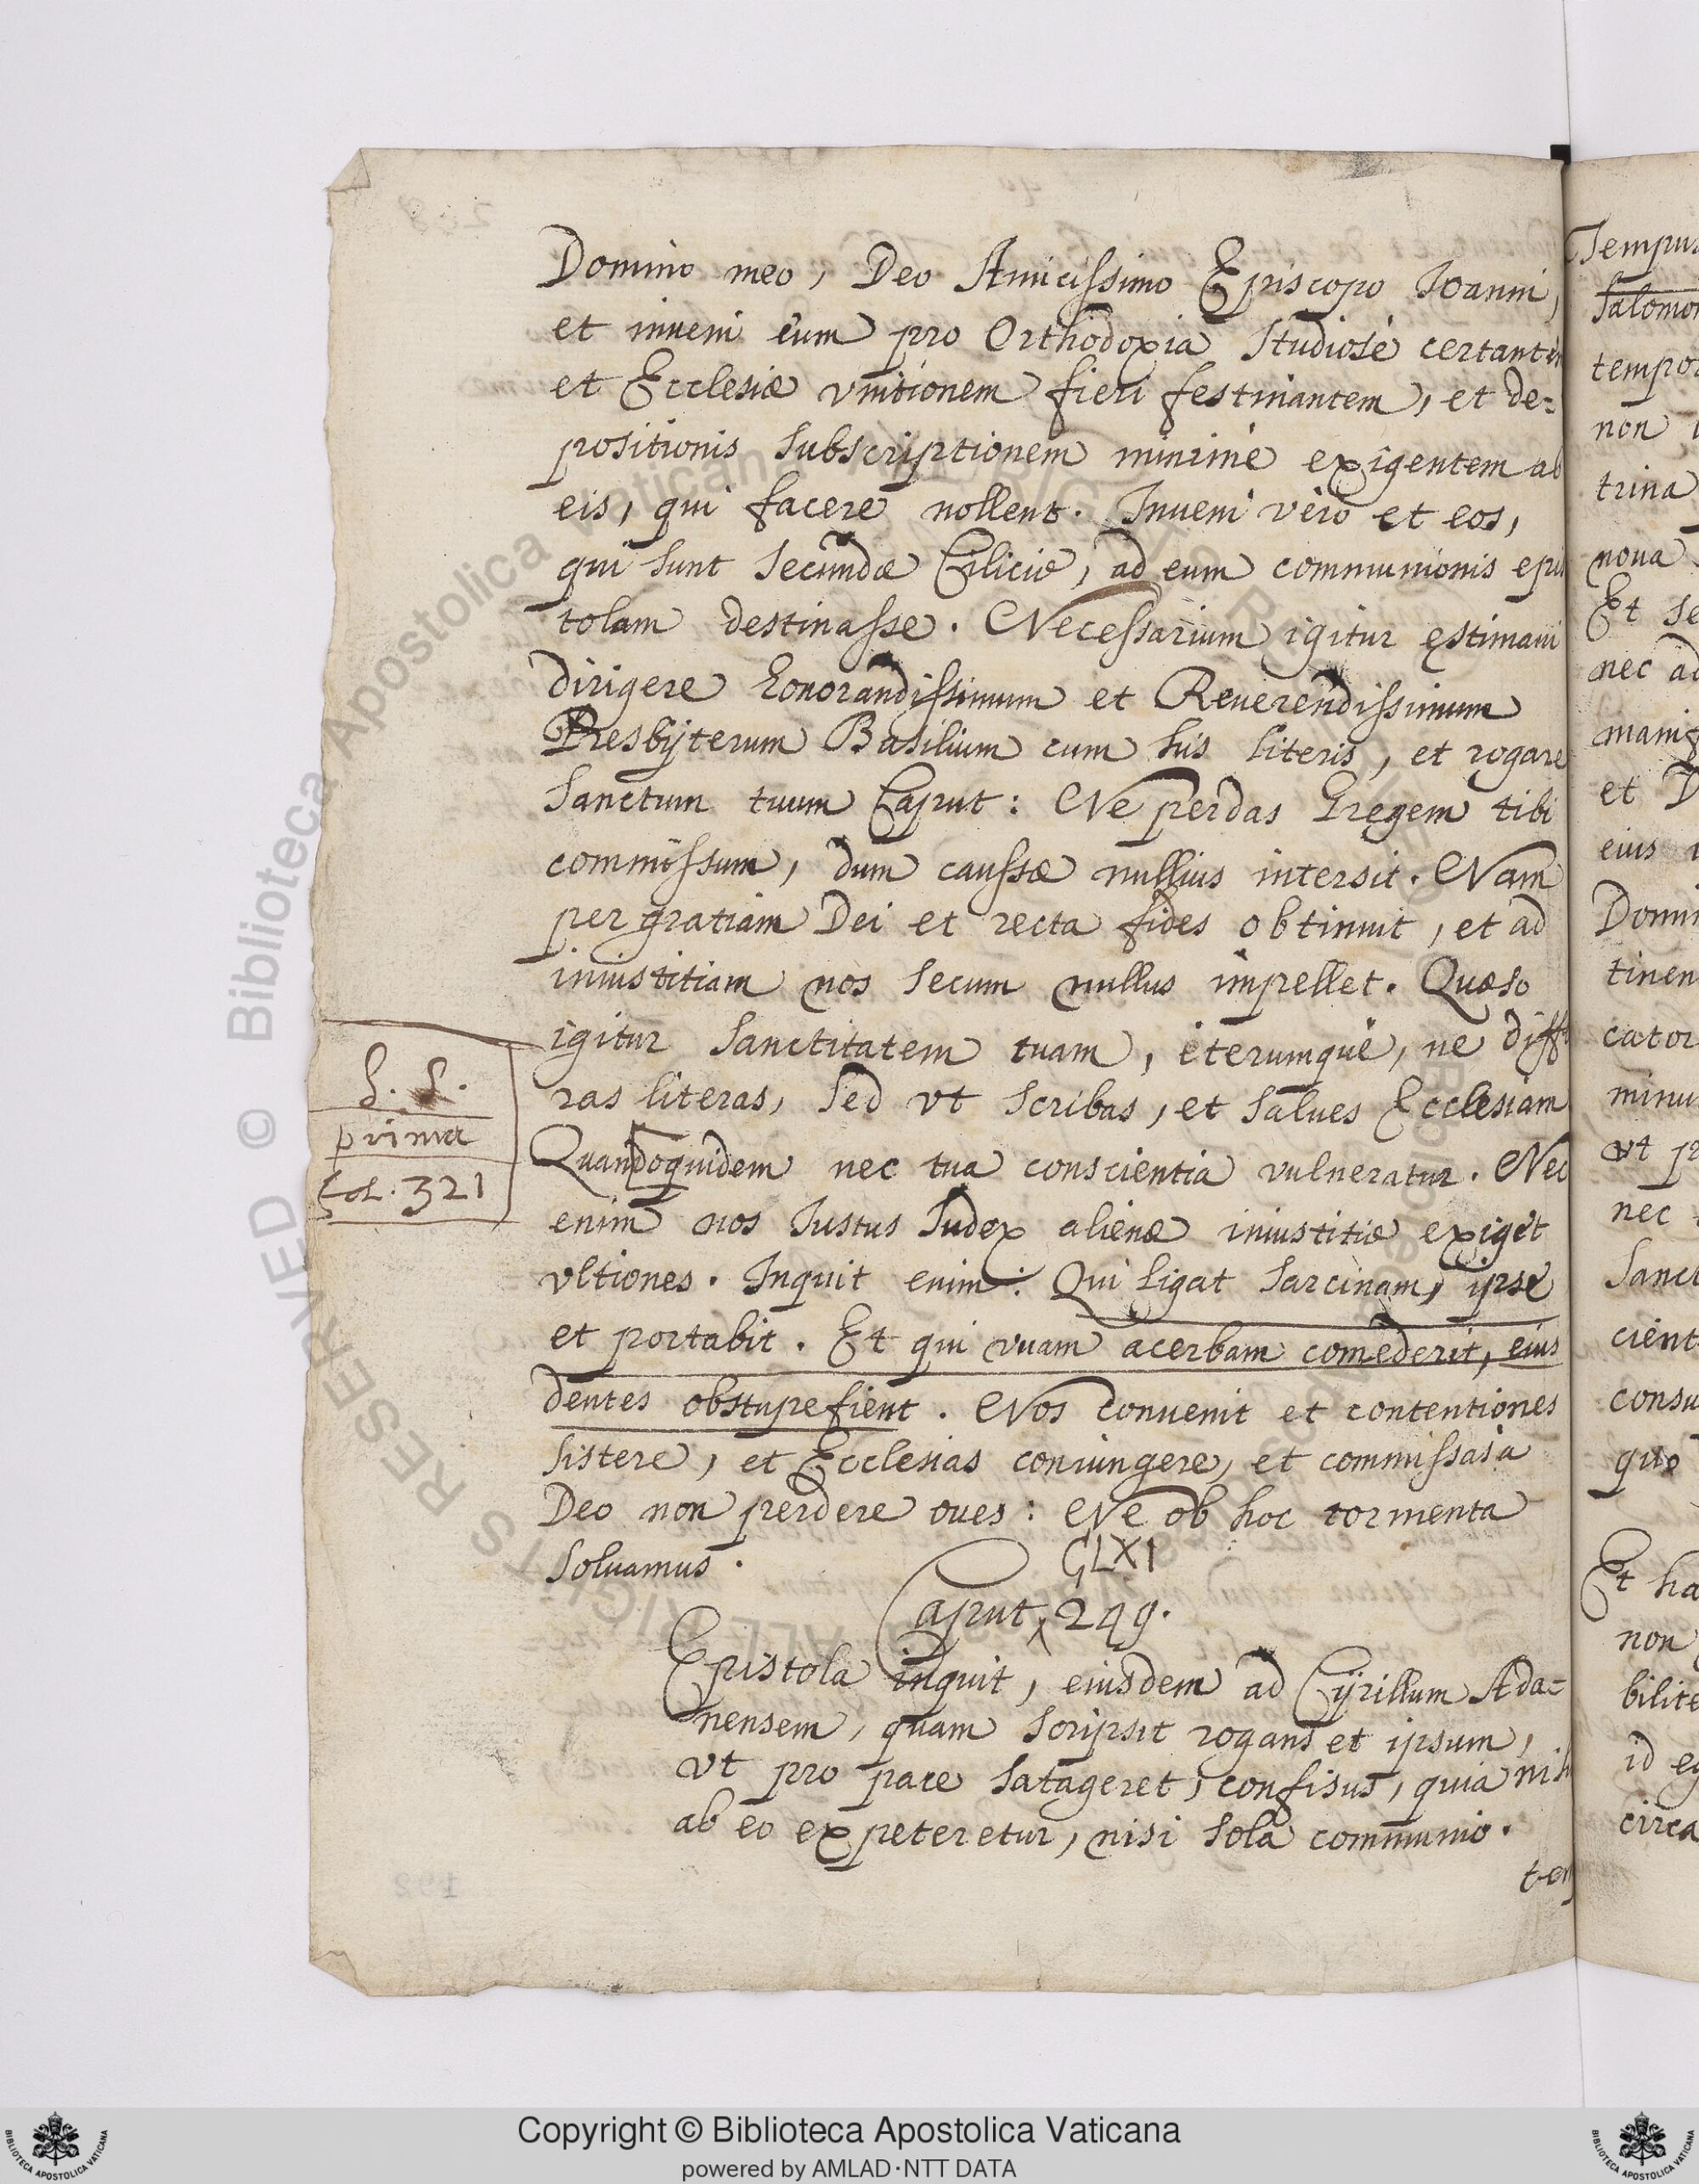 Domino meo, Deo Amicissimo Episcopo Ioanni,
et inueni eum pro Orthodoxia studiose certantem
et Ecclesiæ vnitionem fieri festinantem, et de=
positionis subscriptionem minime exigentem ab
eis, qui facere nollent. Inueni vero et eos,
qui sunt secundæ Ciliciæ, ad eum communionis epis
tolam destinasse. Necessarium igitur estimaui
dirigere honorandissimum et Reuerendissimum
Presbyterum Basilium cum his literis, et rogare
sanctum tuum Caput: Ne perdas gregem tibi
commissum, dum caussæ nullius intersit. Nam
per gratiam Dei et recta fides obtinuit, et ad
iniustitiam nos secum nullus impellet. Quæso
igitur sanctitatem tuam, iterumque, ne diffe
ras literas, sed vt scribas, et salues Ecclesiam
Quandoquidem nec tua conscientia vulneratur. Nec
enim nos Iustus Iudex alienæ iniustitiæ exiget
vltiones. Inquit enim: Qui ligat sarcinam, ipse
et portabit. Et qui vuam acerbam comederit, eius
dentes obstupefient. Nos conuenit et contentiones
sistere, et Ecclesias coniungere, et commissas a
Deo non perdere oues: Ne ob hoc tormenta
soluamus.
CLXI
Caput 299.
Epistola inquit, eiusdem ad Cyrillum Ada=
nensem, quam scripsit rogans et ipsum,
vt pro pace satageret, confisus, quia nih
ab eo expeteretur, nisi sola communio.
tem
prima
fol: 321
Tempus
Salomon
tempor
non
trina
noua
Et se
nec ad
manif
et D
eius
Domin
tinen
cator
minu
vt pr
nec
Sanct
cient
consu
quo
Et ha
non
bilite
id eg
circa
Copyright © Biblioteca Apostolica Vaticana
powered by AMLAD·NTT DATA
© Biblioteca Apostolica Vaticana ALL RIGHTS RESERVED